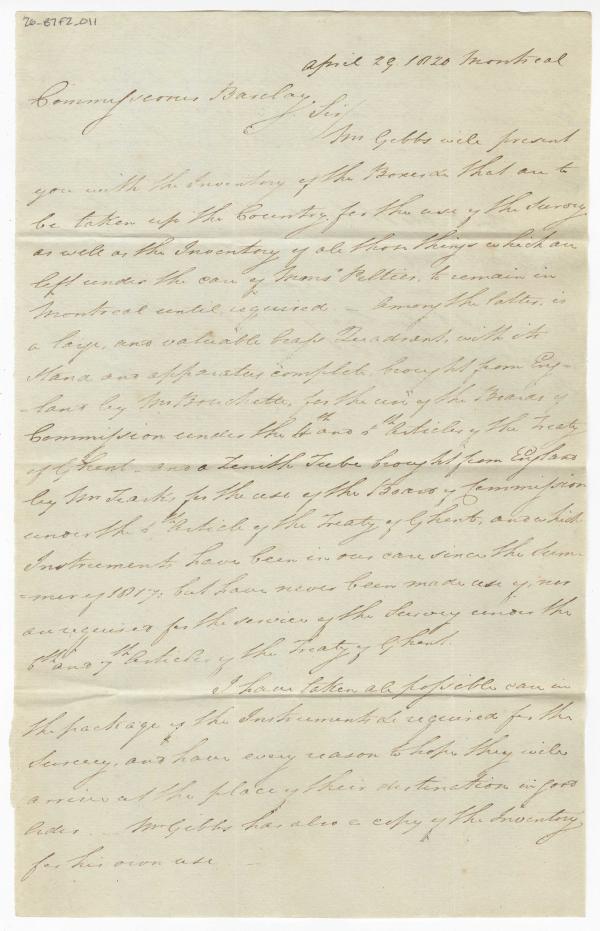 26-B7F2_011
April 29 1820 Montreal
Commissioner Barclay
Sir/
Mr Gibbs will present
you with the Inventory of the Boxes &c that are to
be taken up the Country, for the use of the Survey
as well as the Inventory of all those things which are
left under the care of Peltier, to remain in
Montreal until required. — Among the latter, is
a large, and valuable brass Quadrant, with its
Stand and apparatus complete, brought from Eng-
-land by Mr Bouchette, for the use of the Boards of
Commission under the 4th and 5th Articles of the Treaty
of Ghent — and a Zenith Tube brought from England
by Mr Tiarks for the use of the Board of Commission
under the 5th Article of the Treaty of Ghent, and which
Instruments have been in our care since the Sum-
-mer of 1817; but have never been made use of, nor
are required for the service of the Survey under the
6th and 7th Articles of the Treaty of Ghent.
I have taken all possible care in
the package of the Instruments &c required for the
Survey, and have every reason to hope they will
arrive at the place of their destination in good
order. — Mr Gibbs has also a copy of the Inventory
for his own use —